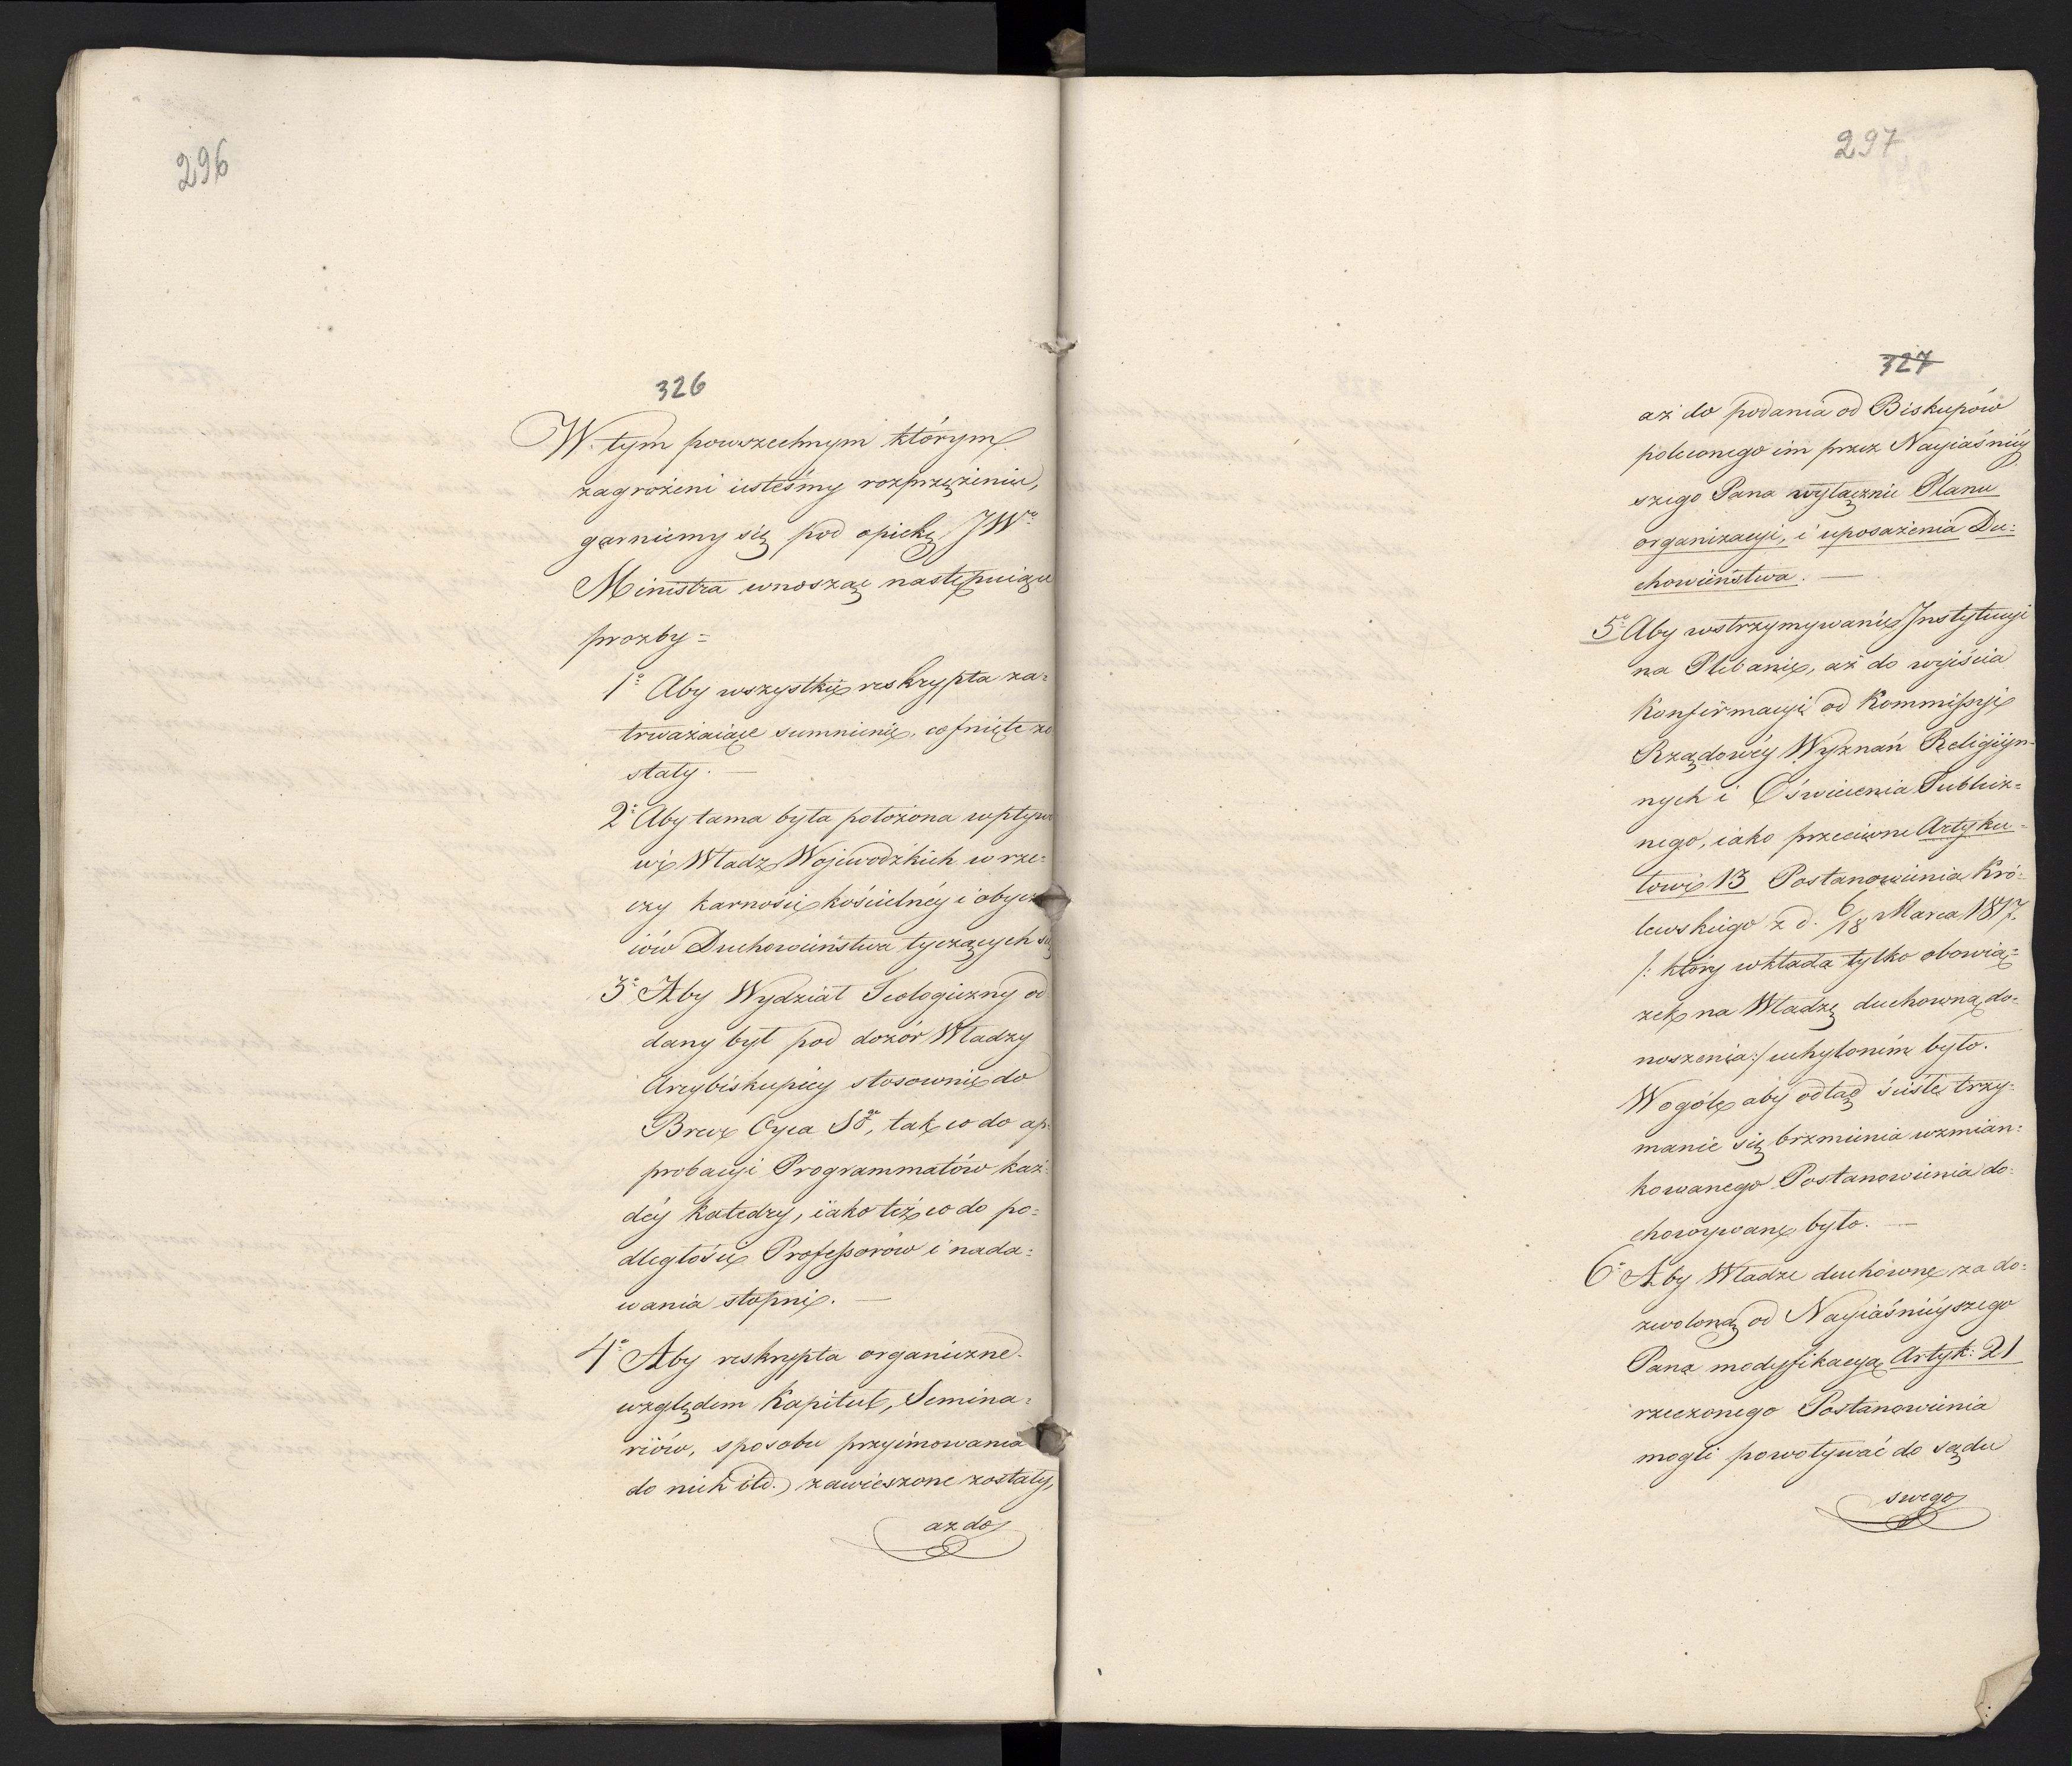 296
326
W tym powszechnym którym
zagrożeni iesteśmy rozprzężeniu,
garniemy się pod opiekę JWo
Ministra wnosząc następuiące
prozby =
1o Aby wszystkie reskrypta za=
trważaiące sumnienie, cofnięte zo
stały. —
2o Aby tama była położona wpływo
wi Władz Wojewodzkich w rze=
czy karności kościelnéy i obycza
iów Duchowieństwa tyczących się
3o Aby Wydział Teologiczny od
dany był pod dozór Władzy
Arcybiskupiey stosownie do
Breve Oyca Sgo, tak co do ap=
probacyi Programmatów każ=
déy Katedry, iako też co do po=
dległości Professorów i nada=
wania stopni. —
4o Aby reskrypta organiczne
względem Kapituł, Semina=
riów, sposobu przyimowania
do nich itd.) zawieszone zostały,
aż do
297
327
aż do podania od Biskupów
poleconego im przez Nayiaśniéy
szego Pana wyłącznie Planu
organizacyi, i uposażenia Du=
chowieństwa. —
5o Aby wstrzymywanie Instytucyi
na Plebanie, aż do wyiścia
Konfirmacyi od Kommissyi
Rządowéy Wyznań Religiyn=
nych i Oświecenia Publicz=
nego, iako przeciwne Artyku=
łowi 13 Postanowienia Kró=
lewskiego z d. 6/18 Marca 1817.
/: który wkłada tylko obowią=
zek na Władzę duchowną do=
noszenia :/ uchyloném było.
W ogóle aby odtąd ściśle trzy=
manie się brzmienia wzmian=
kowanego Postanowienia do=
chowywane było. —
6o Aby Władze duchówne za do=
zwoloną od Nayiaśniéyszego
Pana modyfikacyą Artyk: 21
rzeczonego Postanowienia
mogli powoływać do sądu
swego